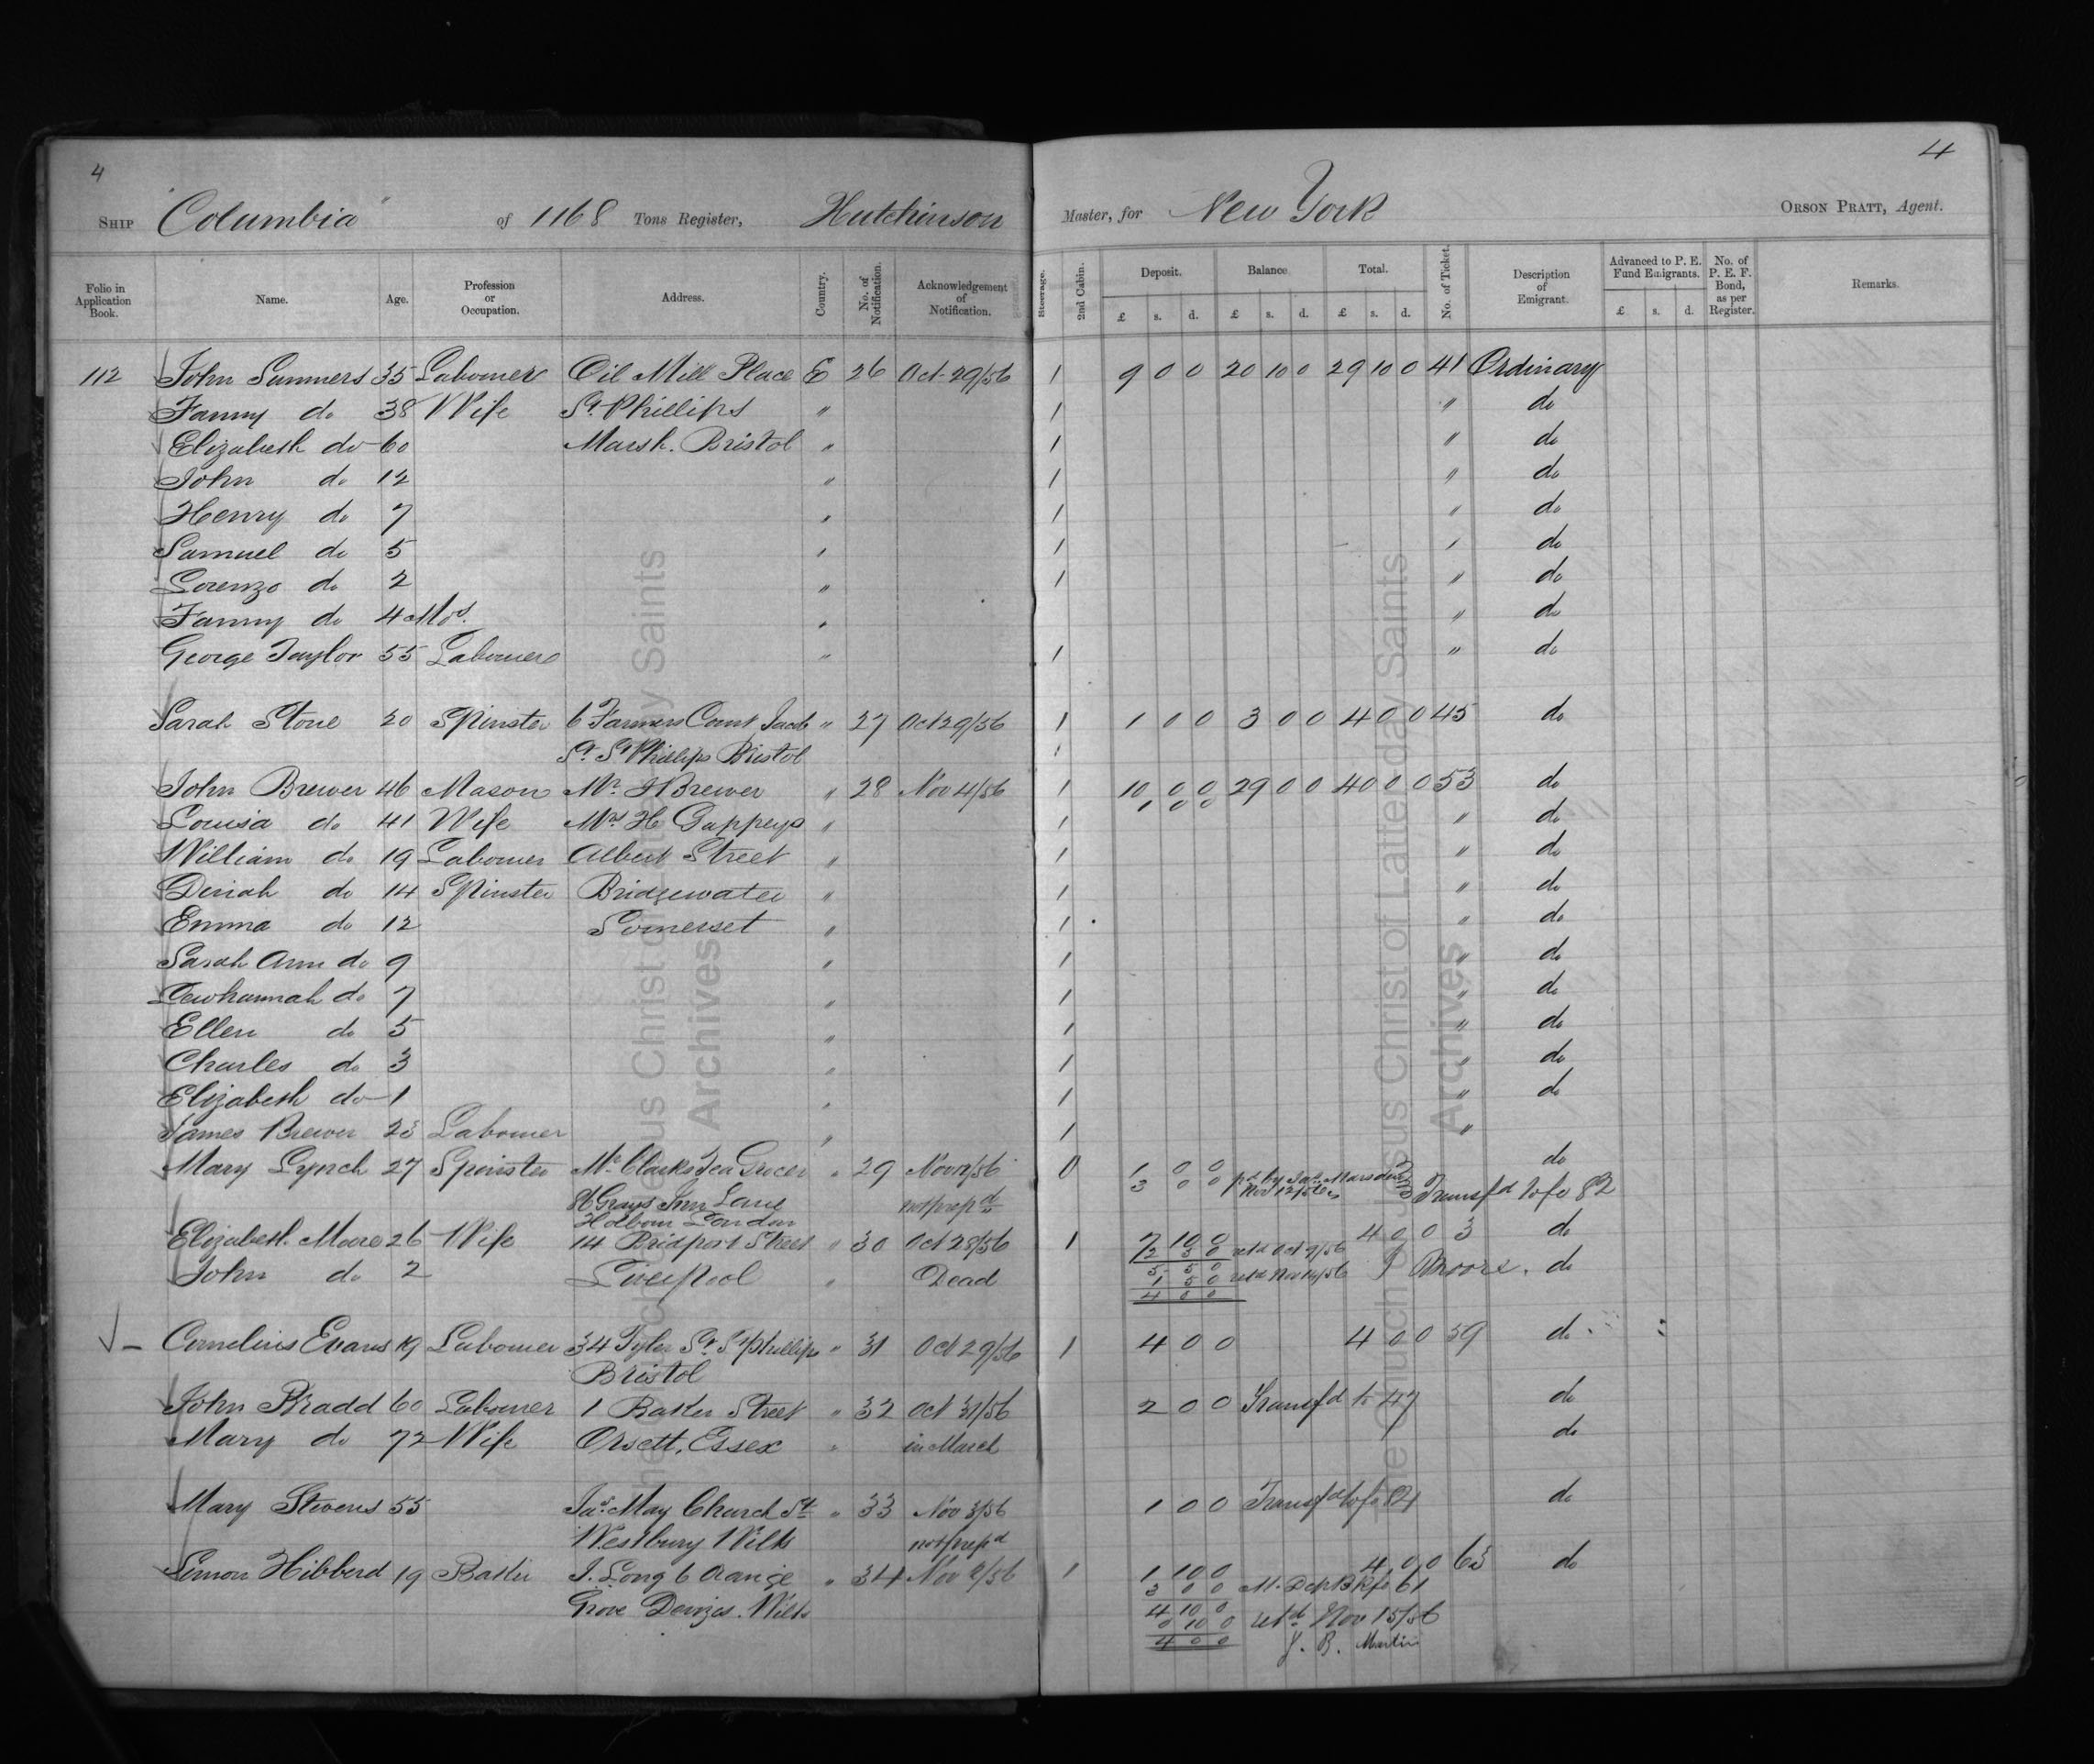 4
4
SHIP "Columbia" of 1168 Tons Register, Hutchinson Master, for New York ORSON PRATT, Agent.
Folio in Application Book. Name. Age. Profession or Occupation. Address. Country. No. of Notification. Acknowledgement of Notification. Steerage. 2nd Cabin. Deposit. Balance. Total. No. of Ticket. Description of Emigrant. Advanced to P. E. Fund Emigrants. No. of P. E. F. Bond, as per Register. Remarks.
£ s. d. £ s. d. £ s. d. £ s. d.
112 John Summers 35 Labourer Oil Mill Place E 26 Oct 29/56 1 9 0 0 20 10 0 29 10 0 41 Ordinary
Fanny do 38 Wife St Phillips " 1 " do
Elizabeth do 60 Marsh. Bristol " 1 " do
John do 12 " 1 " do
Henry do 7 " 1 " do
Samuel do 5 " 1 " do
Lorenzo do 2 " 1 " do
Fanny do 4 Mos. " " do
George Taylor 55 Labourer " 1 " do
Sarah Stone 20 Spinster 6 Farmers Court Jacob " 27 Oct 29/56 1 1 0 0 3 0 0 4 0 0 45 do
St St Phillips Bristol
John Brewer 46 Mason Mr J Brewer " 28 Nov 4/56 1 10 0 0 29 0 0 40 0 0 53 do
1 0 0
Louisa do 41 Wife Mrs H Guppeys " 1 " do
William do 19 Labourer Albert Street " 1 " do
Deriah do 14 Spinster Bridgewater " 1 " do
Emma do 12 Somerset " 1 " do
Sarah Ann do 9 " 1 " do
Lewhannah do 7 " 1 " do
Ellen do 5 " 1 " do
Charles do 3 " 1 " do
Elizabeth do 1 " 1 " do
James Brewer 23 Labourer " 1 "
Mary Lynch 27 Spinster Mr Clarks Tea Grocer " 29 Nov /56 0 1 0 0 do
3 0 0 pd by Jas. Marsden Transfd to fo 82
Nov 12/56
86 Grays Inn Lane notprepd
Holborn London
Elizabeth Moore 26 Wife 14 Bridport Street " 30 Oct 28/56 1 7 10 0 4 0 0 3 do
2 5 0 retd Oct 9/56
John do 2 Liverpool " Dead 5 5 0 J Moore. do
1 5 0 retd Nov 14/56
4 0 0
Cornelius Evans 19 Labourer 34 Tyler St St Phillips " 31 Oct 29/56 1 4 0 0 4 0 0 59 do
Bristol
John Bradd 60 Labourer 1 Baker Street " 32 Oct 31/56 2 0 0 Transfd to 47 do
Mary do 72 Wife Orsett, Essex " in March do
Mary Stevens 55 Jas. May Church St " 33 Nov 3/56 1 0 0 Transfd to fo 124 do
Westbury Wilts notprepd
Simon Hibberd 19 Baker J. Long 6 Orange " 34 Nov 9/56 1 1 10 0 4 0 0 63 do
3 0 0 M. Dep Bk fo 61
Grove Devizes. Wilts 4 10 0
0 10 0 retd Nov 15/56
4 0 0 J. B. Martin
The Church of Jesus Christ of Latter-day Saints
Archives
The Church of Jesus Christ of Latter-day Saints
Archives